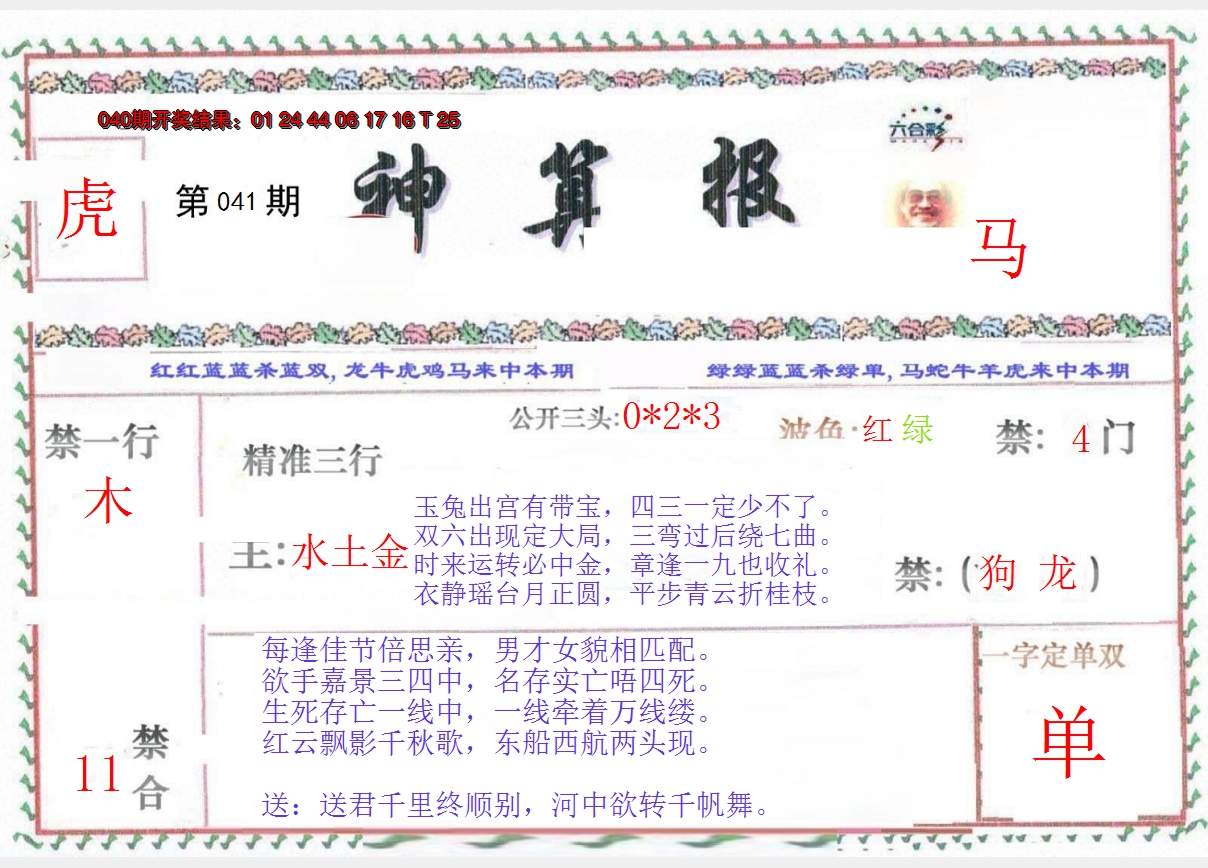 040期开奖结果：01 24 44 06 17 16 T 25
六合彩
虎
第 041 期
神算报
马
红红蓝蓝杀蓝双, 龙牛虎鸡马来中本期
绿绿蓝蓝杀绿单, 马蛇牛羊虎来中本期
禁一行
木
精准三行
主:水土金
公开三头:0*2*3
波色:红 绿
禁: 4 门
玉兔出宫有带宝，四三一定少不了。
双六出现定大局，三弯过后绕七曲。
时来运转必中金，章逢一九也收礼。
衣静瑶台月正圆，平步青云折桂枝。
禁:(狗 龙)
每逢佳节倍思亲，男才女貌相匹配。
欲手嘉景三四中，名存实亡唔四死。
生死存亡一线中，一线牵着万线缕。
红云飘影千秋歌，东船西航两头现。
送：送君千里终顺别，河中欲转千帆舞。
11
禁合
一字定单双
单